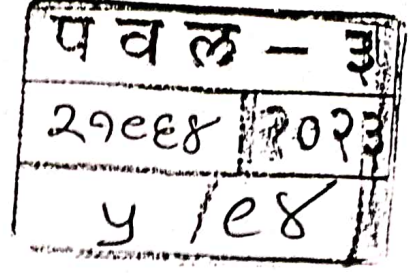 प व ल - ३
२१९६४ २०२३
५ / ९४